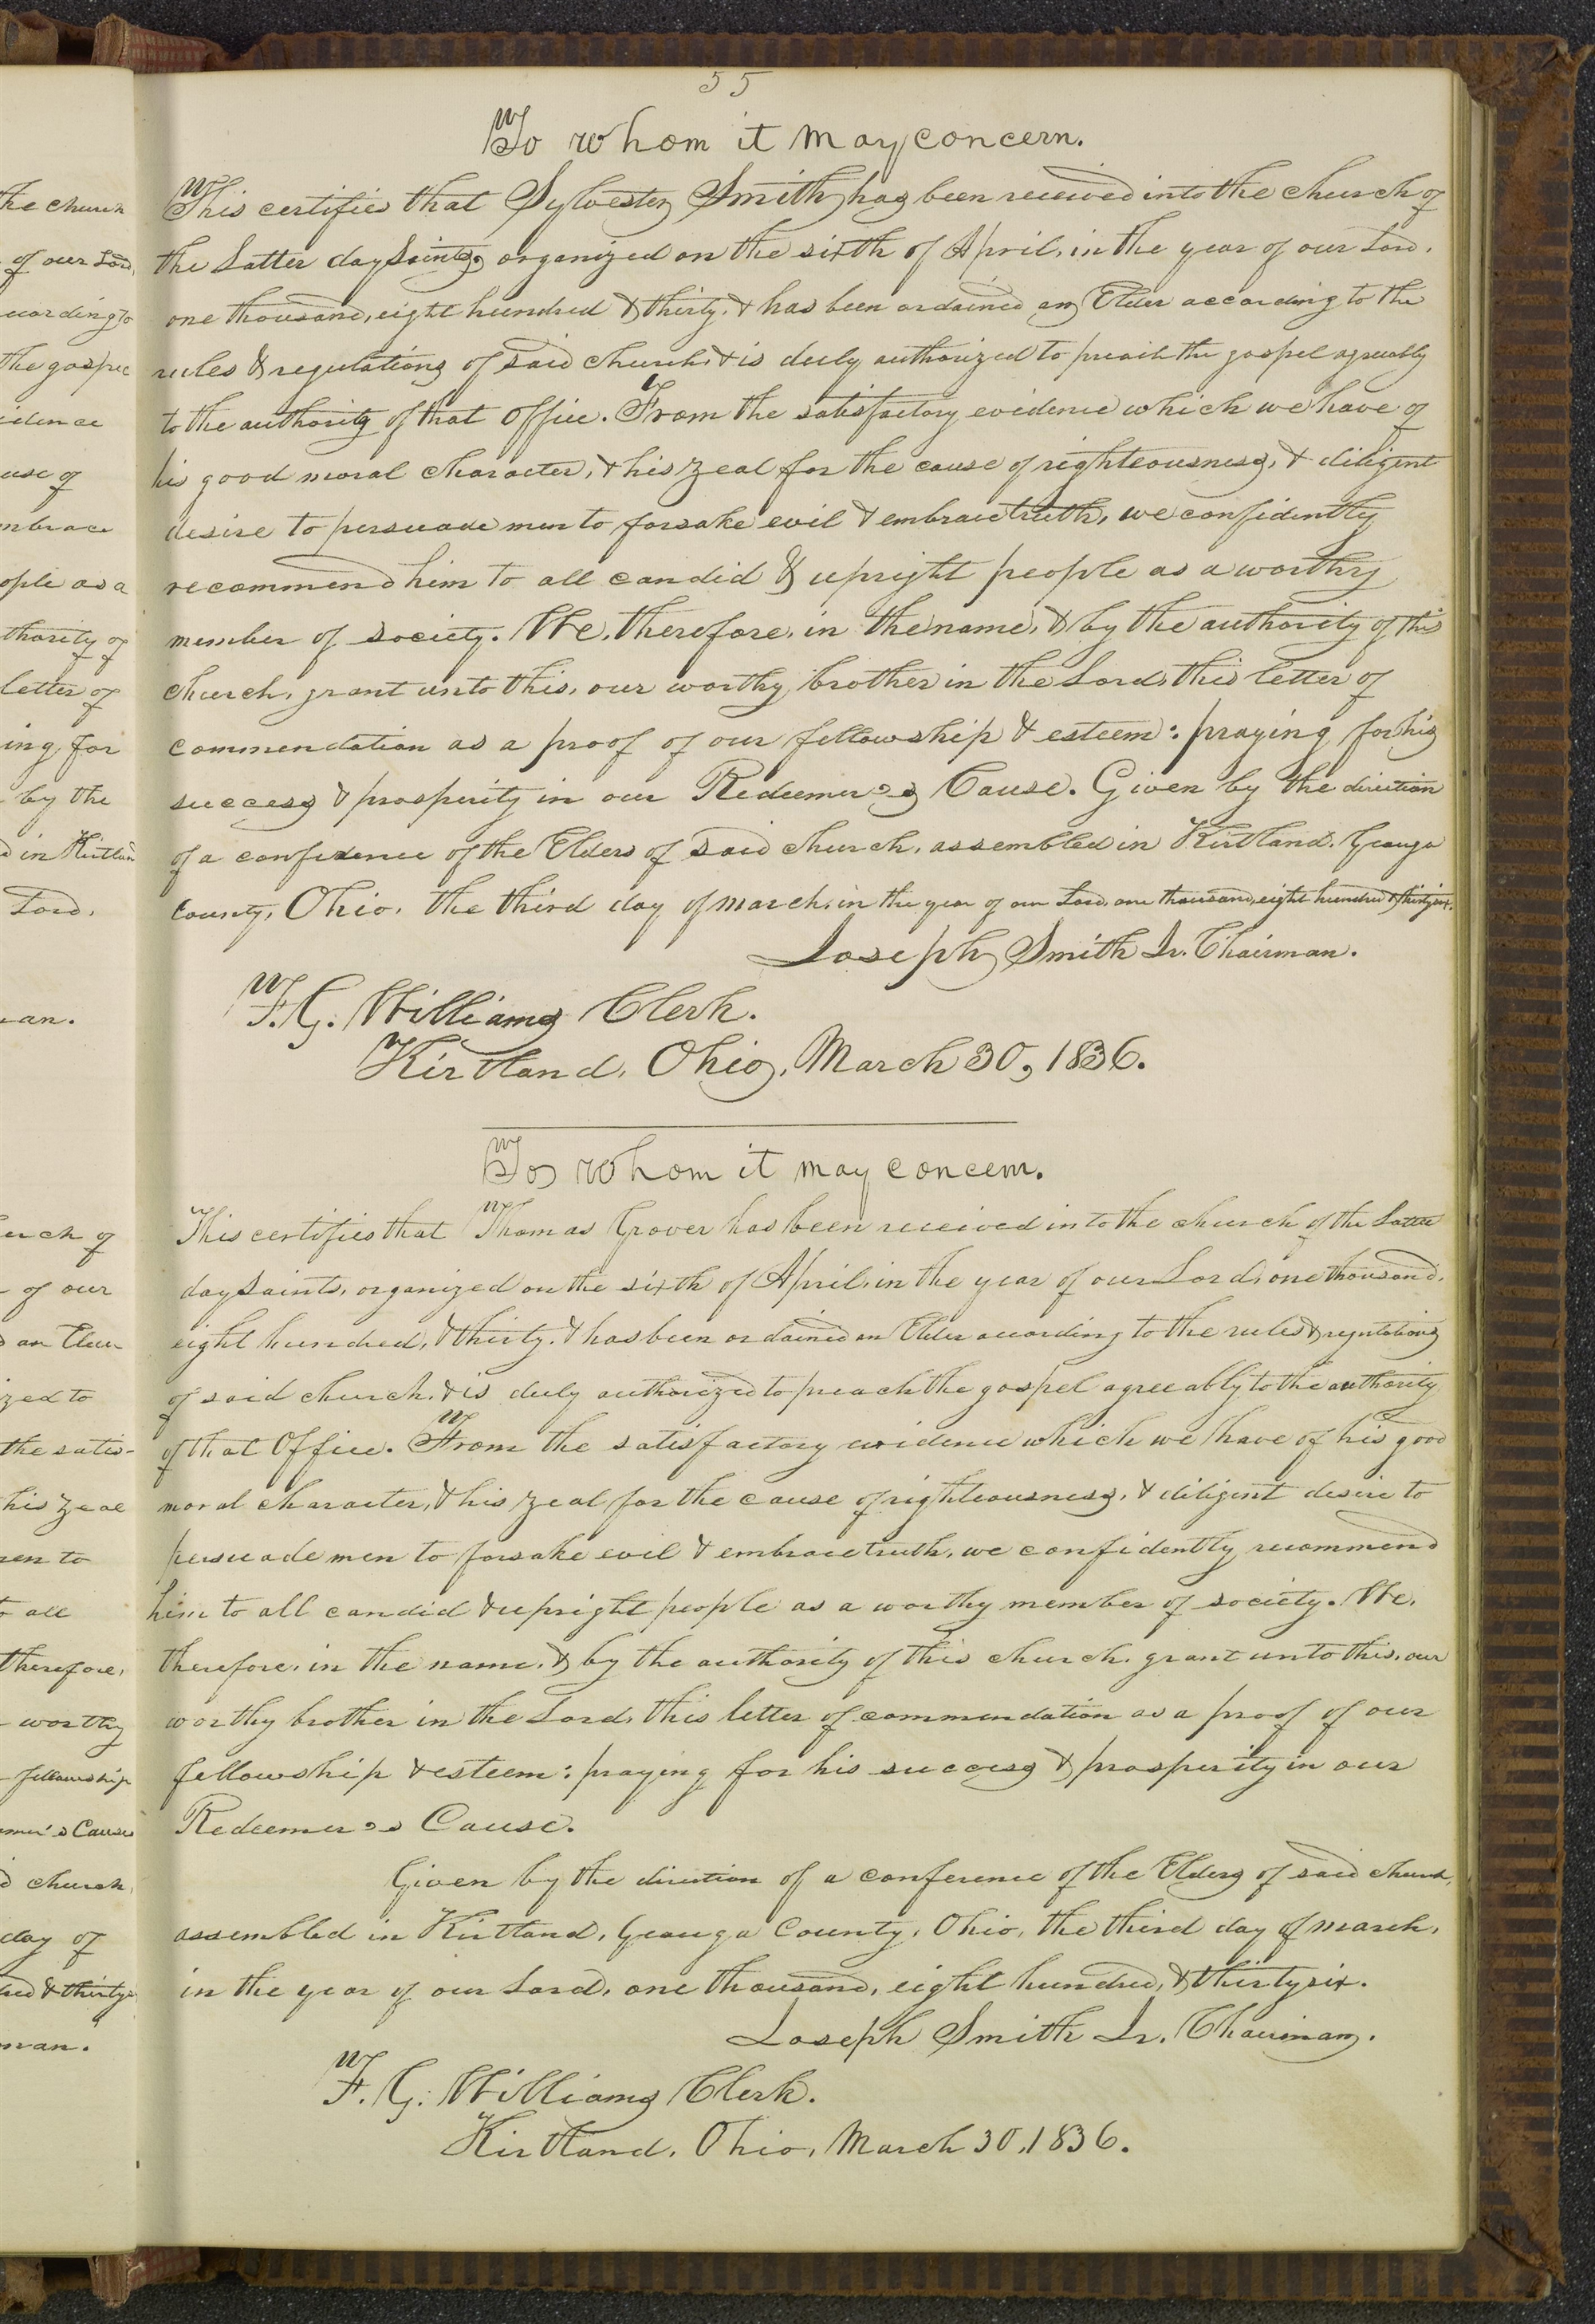 55
To whom it may concern.
This certifies that Sylvester Smith has been received into the church of
the Latter day Saints, organized on the sixth of April, in the year of our Lord,
one thousand, eight hundred & thirty, & has been ordained an Elder according to the
rules & regulations of said church, & is duly authorized to preach the gospel agreeably
to the authority of that Office. From the satisfactory evidence which we have of
his good moral character, & his zeal for the cause of righteousness, & diligent
desire to persuade men to forsake evil & embrace truth, we confidently
recommend him to all candid & upright people as a worthy
member of society. We, therefore, in the name, & by the authority of this
church, grant unto this, our worthy brother in the Lord, this letter of
commendation as a proof of our fellowship & esteem: praying for his
success & prosperity in our Redeemer's Cause. Given by the direction
of a conference of the Elders of said church, assembled in Kirtland, Geauga
County, Ohio, the third day of march, in the year of our Lord, one thousand, eight hundred & thirty six.
Joseph Smith Jr. Chairman.
F. G. Williams Clerk.
Kirtland, Ohio, March 30, 1836.
To whom it may concern.
This certifies that Thomas Grover has been received into the church of the Latter
day Saints, organized on the sixth of April, in the year of our Lord, one thousand,
eight hundred, & thirty, & has been ordained an Elder according to the rules & regulations
of said church, & is duly authorized to preach the gospel agreeably to the authority
of that Office. From the satisfactory evidence which we have of his good
moral character, & his zeal for the cause of righteousness, & diligent desire to
persuade men to forsake evil & embrace truth, we confidently recommend
him to all candid & upright people as a worthy member of society. We,
therefore, in the name, & by the authority of this church, grant unto this, our
worthy brother in the Lord, this letter of commendation as a proof of our
fellowship & esteem: praying for his success & prosperity in our
Redeemer's Cause.
Given by the direction of a conference of the Elders of said church,
assembled in Kirtland, Geauga County, Ohio, the third day of march,
in the year of our Lord, one thousand, eight hundred, & thirty six.
Joseph Smith Jr. Chairman.
F. G. Williams Clerk.
Kirtland, Ohio, March 30, 1836.